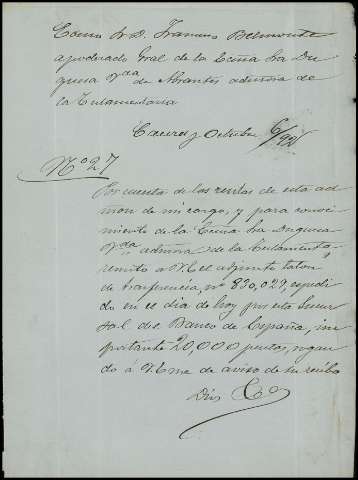 Excmo Sr D. Francisco Belmonte
apoderado Gral de la Excma Sra Du
quesa Vda de Abrantes admora de
la Testamentaria
Caceres y Octubre 6/92
Nº 27
Por cuenta de las rentas de esta ad
mon de mi cargo, y para conoci
miento de la Excma Sra Duquesa
Vda admora de la Testamentª,
remito a V.E. el adjunto talon
de trasferencia, nº 890,029, espedi
do en el dia de hoy por esta Sucur
sal del Banco de España, im
portante 20,000 pesetas, rogan
do á V.E. me de aviso de su recibo
Dios &ª